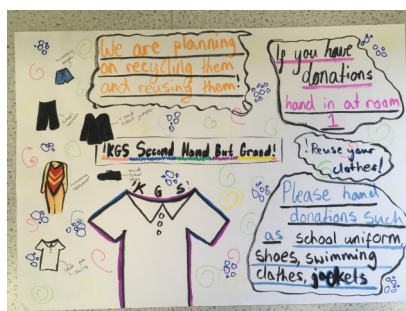 We are planning
on recycling them
and reusing them!
If you have
donations
hand in at room
1
!KGS Second Hand But Grand!
!Reuse your
clothes!
'K G S'
Please hand
donations such
as school uniform,
shoes, swimming
clothes, jackets